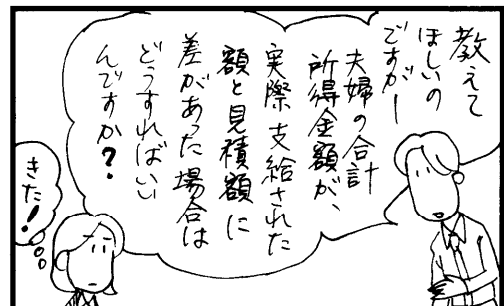 教えて
ほしいの
ですがー
夫婦の合計
所得金額が、
実際支給された
額と見積額に
差があった場合は
どうすればいい
んですか?
きた!